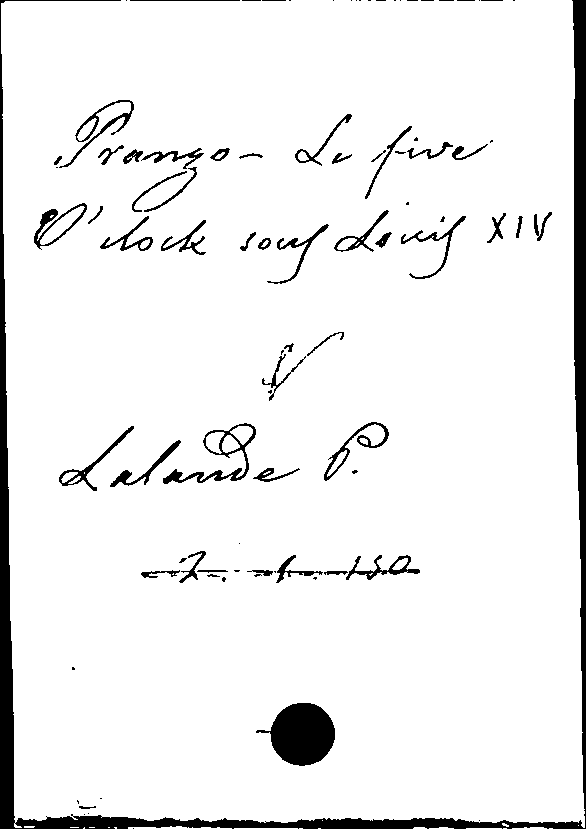 Pranzo - Le five
O'clock sous Louis XIV
V
Lalande P.
7. 1. 150